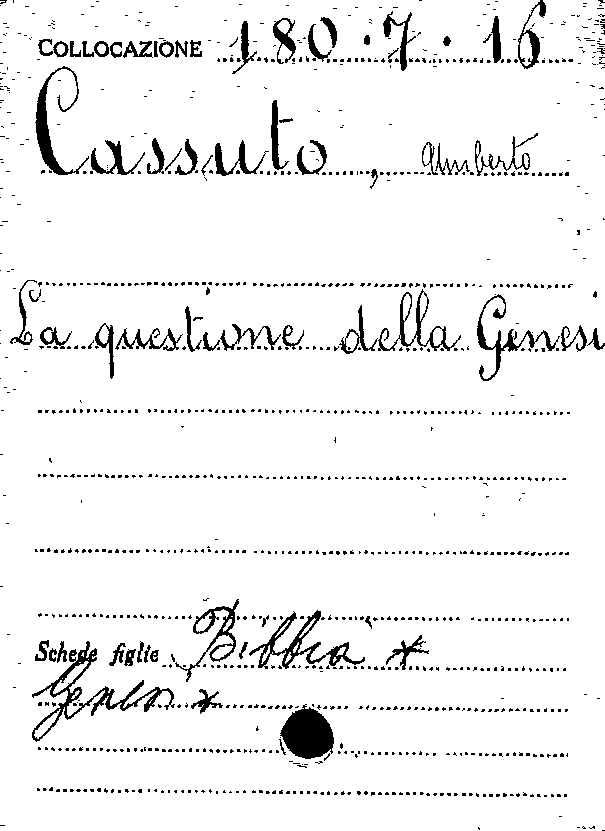 COLLOCAZIONE 180.7.16
Cassuto, Umberto
La questione della Genesi
Schede figlie Bibbia *
Genesi *